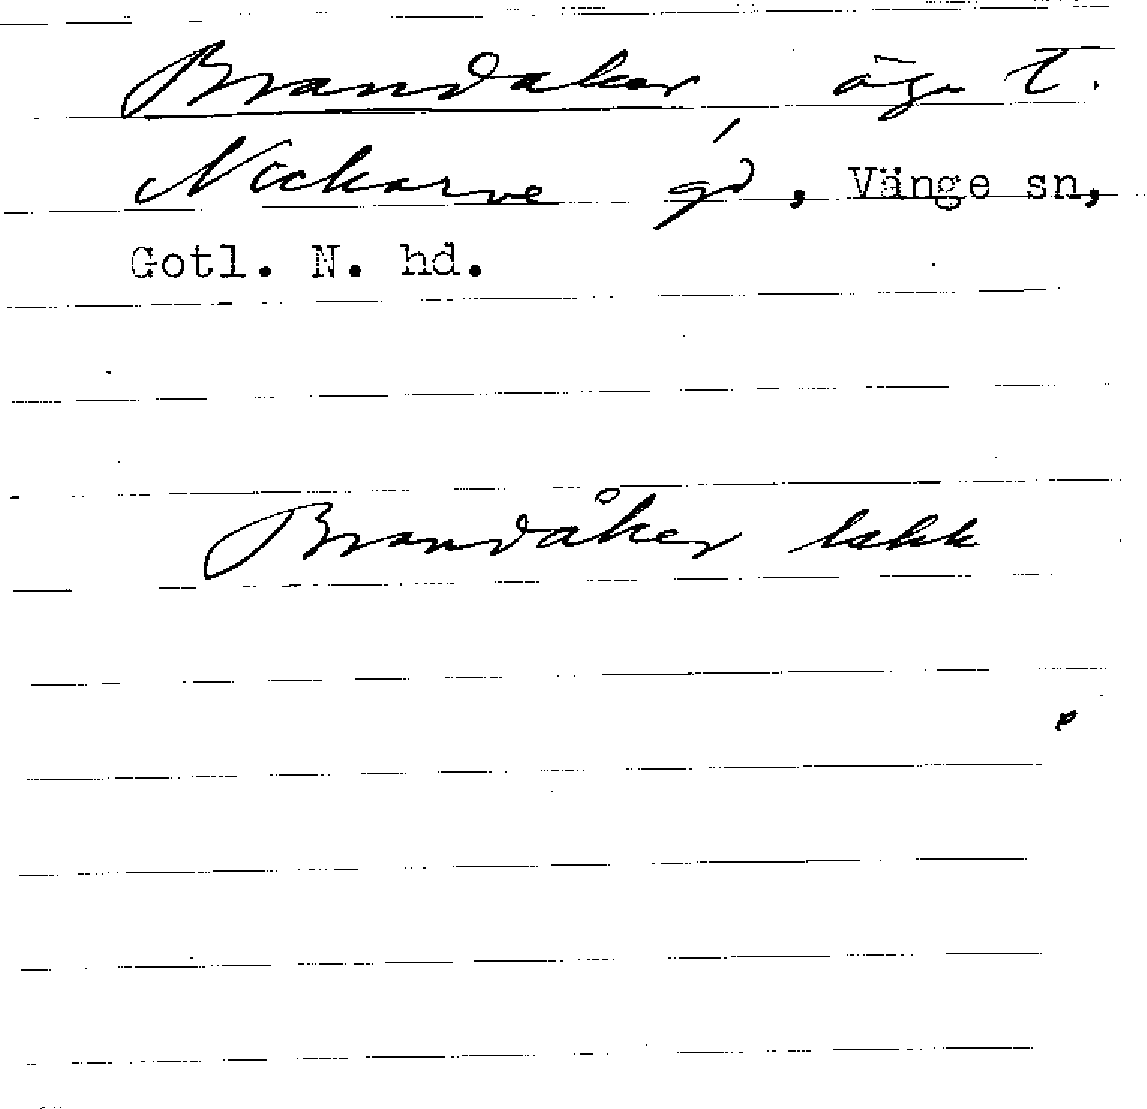 Brandaker äga t.
Nickarve gd, Vänge sn,
Gotl. N. hd.
Brandåker